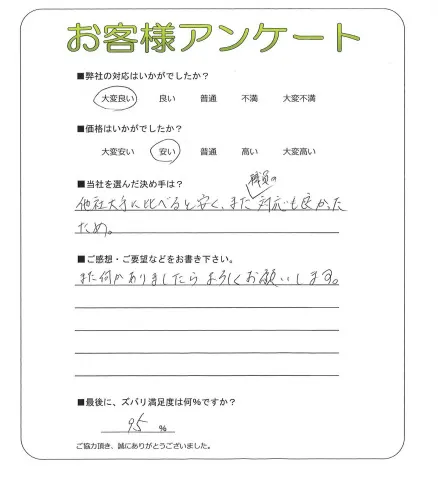 お客様アンケート
■弊社の対応はいかがでしたか？
大変良い 良い 普通 不満 大変不満
■価格はいかがでしたか？
大変安い 安い 普通 高い 大変高い
■当社を選んだ決め手は？
職員の
他社大手に比べると安く、また対応も良かった
ため。
■ご感想・ご要望などをお書き下さい。
また何かありましたらよろしくお願いします。
■最後に、ズバリ満足度は何%ですか？
95 %
ご協力頂き、誠にありがとうございました。